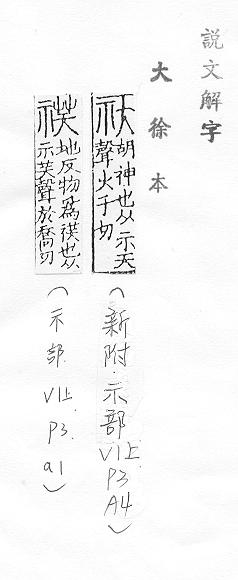 説文解字
大徐本
祆 胡神也从示天
聲火千切
(新附.示部 V1上. P3 A4)
䄏 地反物爲䄏也从
示芺聲於喬切
(示部 V1上. P3. a1)